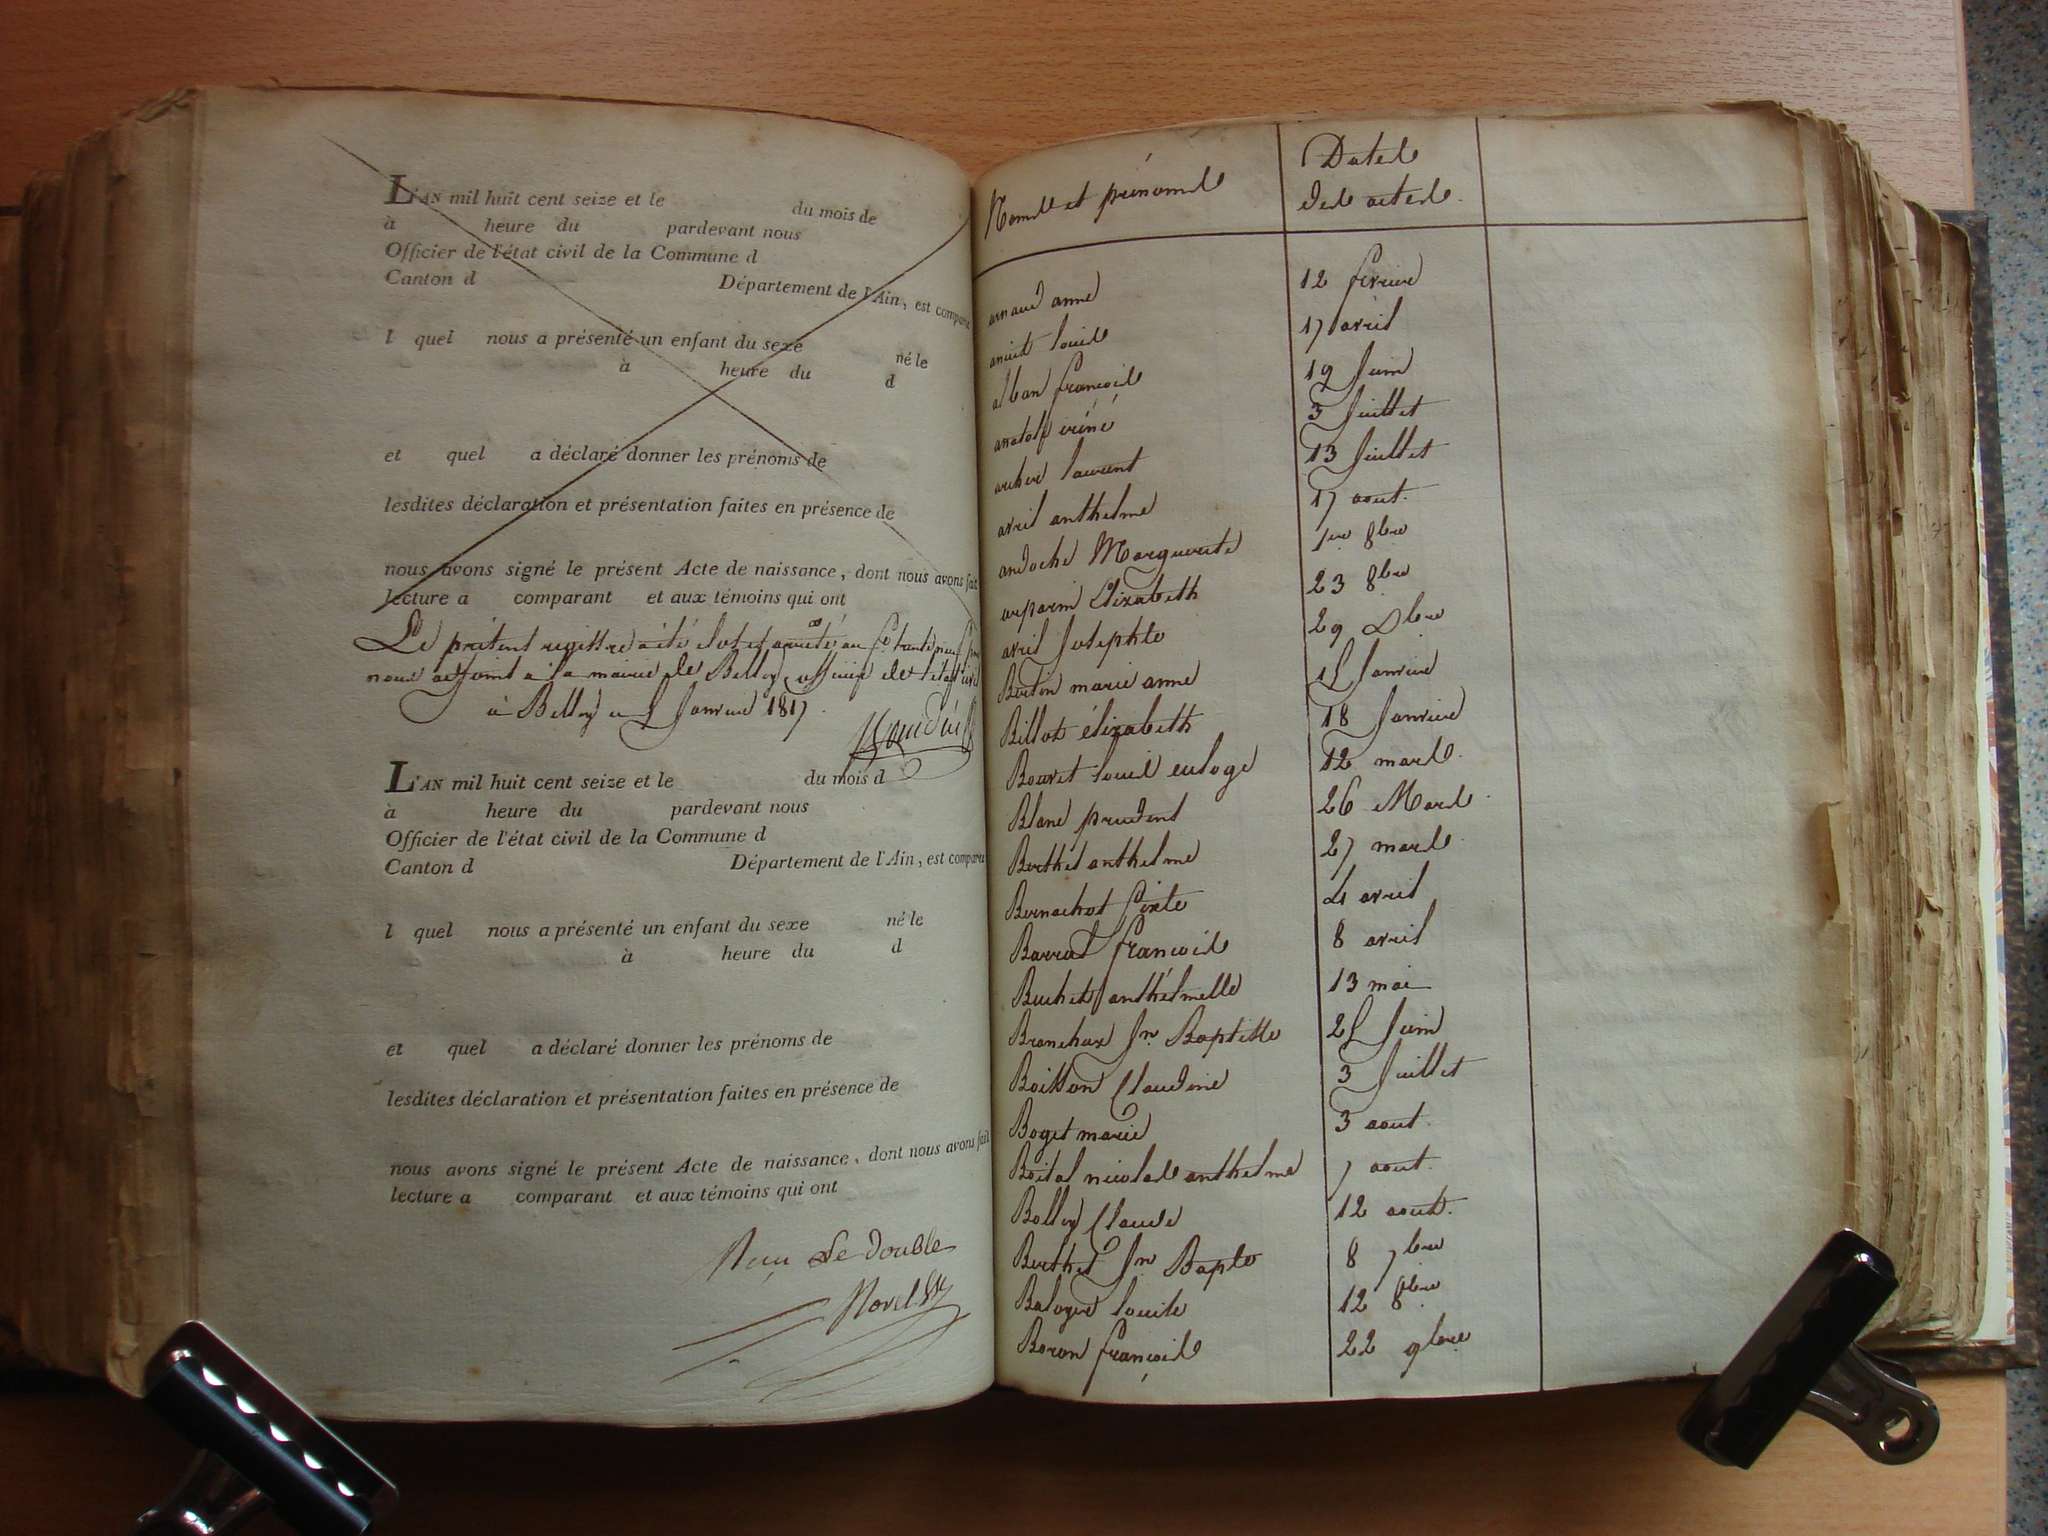 L'AN mil huit cent seize et le du mois de
à heure du pardevant nous
Officier de l'état civil de la Commune d
Canton d Département de l'Ain, est comparu
l quel nous a présenté un enfant du sexe né le
à heure du d
et quel a déclaré donner les prénoms de
lesdites déclaration et présentation faites en présence de
nous avons signé le présent Acte de naissance, dont nous avons fait
lecture a comparant et aux témoins qui ont
Le présent registre a été clos et arrêté au fo trente neuf par
nous adjoint à la mairie de Belley, officier de l'état civil
à Belley le 1 Janvier 1817
L'AN mil huit cent seize et le du mois d
à heure du pardevant nous
Officier de l'état civil de la Commune d
Canton d Département de l'Ain, est comparu
l quel nous a présenté un enfant du sexe né le
à heure du d
et quel a déclaré donner les prénoms de
lesdites déclaration et présentation faites en présence de
nous avons signé le présent Acte de naissance, dont nous avons fait
lecture a comparant et aux témoins qui ont
Reçu Le Double
Noms et prénoms Dates
des actes.
arnaud anne 12 fevrier
louis 17 avril
alban francois 19 Juin
anatolf iréné 3 Juillet
archer laurent 13 Juillet
avril anthelme 17 aout.
andoche Marguerite 1er 8bre
arparin Elizabeth 23 8bre
avril Josephte 29 Dbre
Berton marie anne 1 Janvier
Billot élizabeth 18 Janvier
Bouvet louis euloge 12 mars.
Blanc prudent 26 Mars.
Berthet anthelme 27 mars.
Bernachot Sixte 4 avril
Barrat francois 8 avril
Buchet anthelmette 13 mai
Branchux Jn Baptiste 25 Juin
Boisson Claudine 3 Juillet
Boget marie 3 aout.
Boital nicolas anthelme 7 aout.
Bolley Claude 12 aout.
Berthet Jn Bapte 8 7bre
Baloger louise 12 8bre
Boron françois 22 9bre